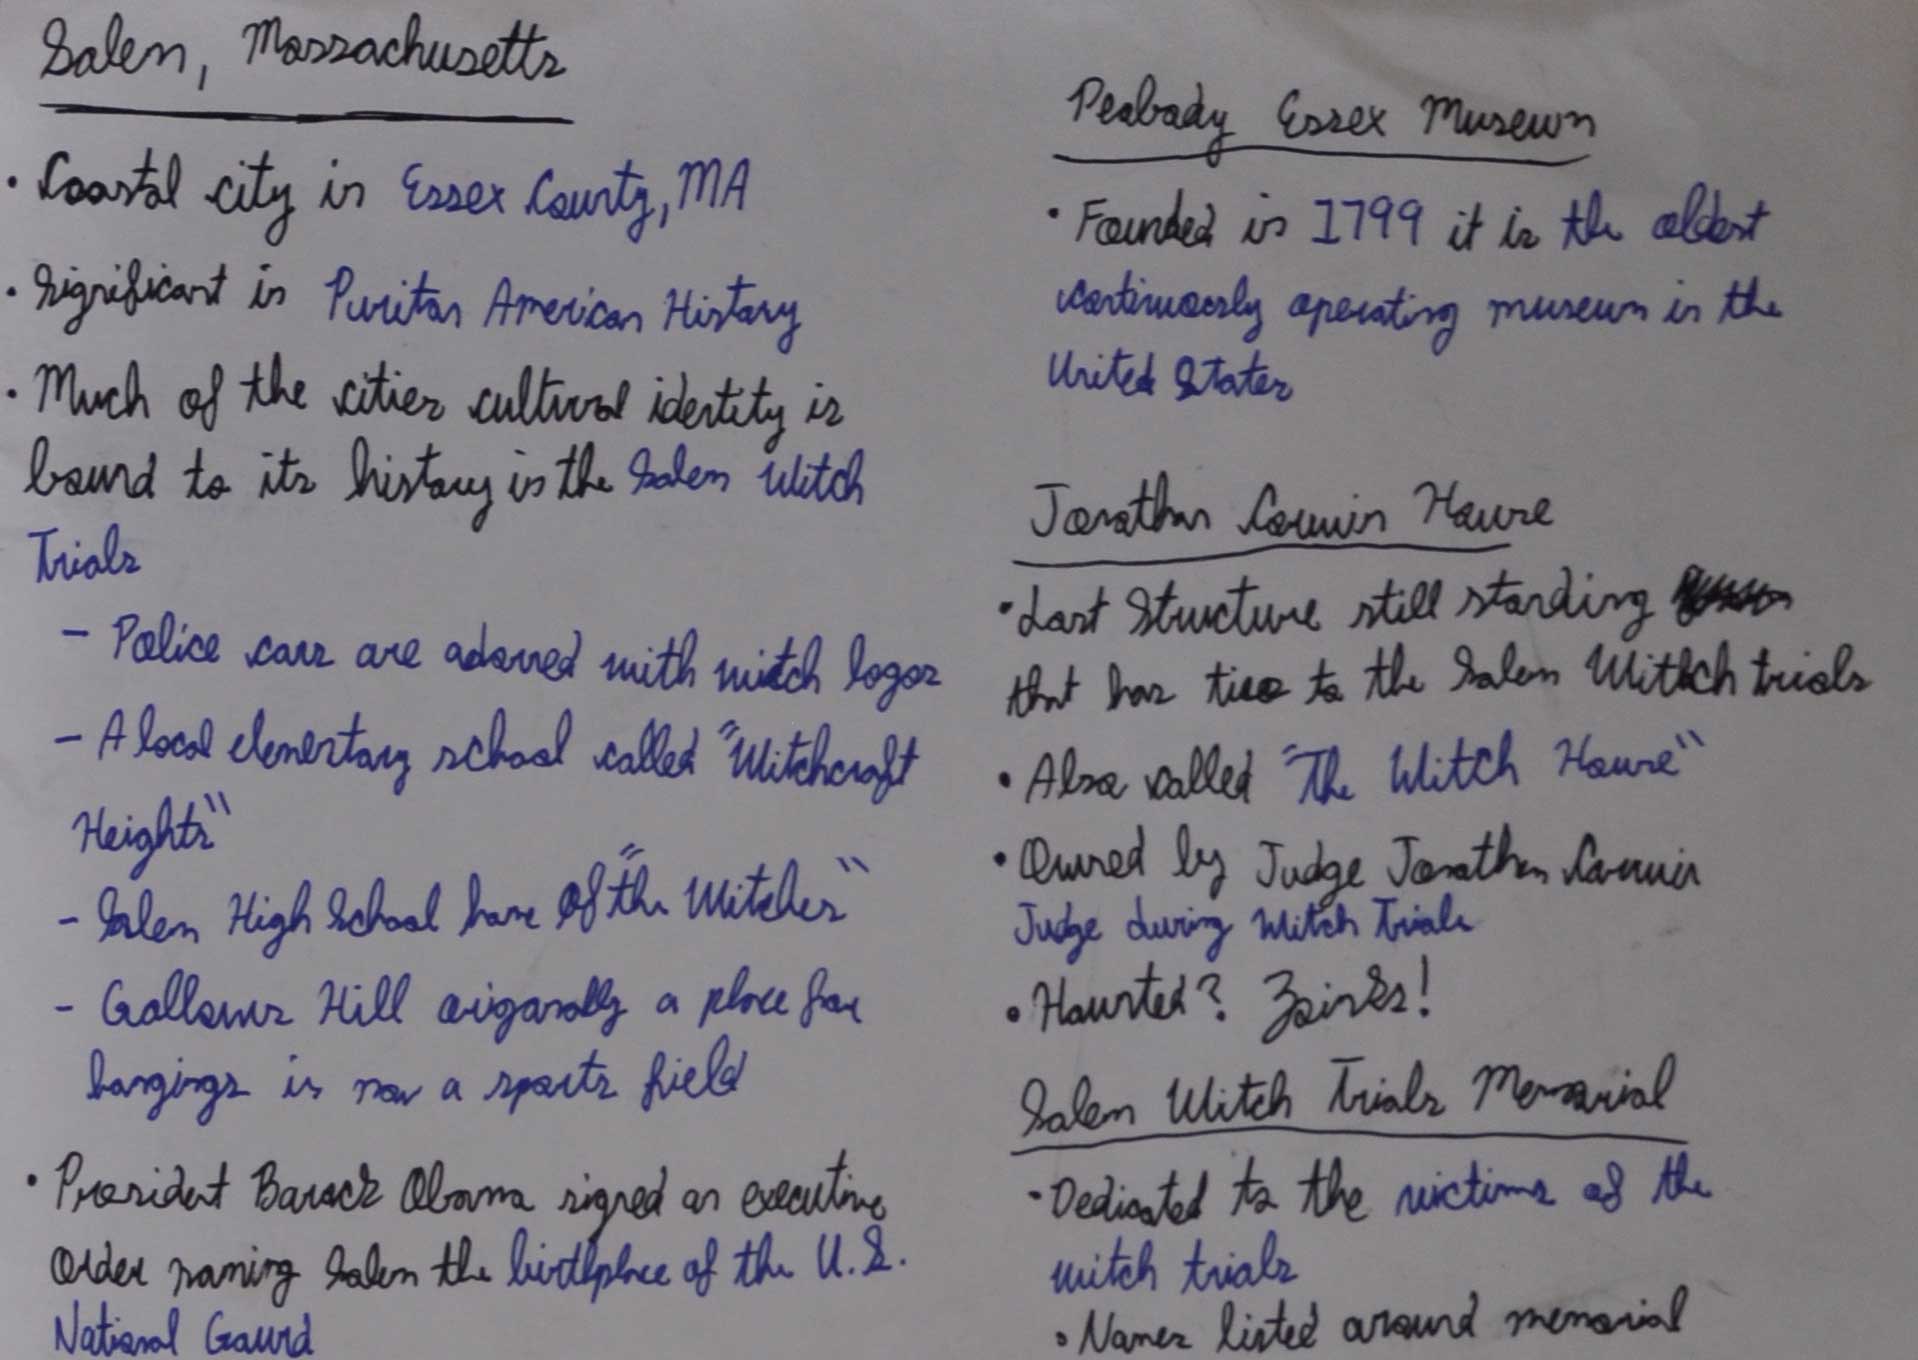 Salem, Massachusetts
• Coastal city in Essex County, MA
• Significant in Puritan American History
• Much of the cities cultural identity is
bound to its history in the Salem Witch
Trials
- Police cars are adorned with witch logos
- A local elementary school called "Witchcraft
Heights"
- Salem High School home of "the Witches"
- Gallows Hill origanally a place for
hangings is now a sports field
• President Barack Obama signed an executive
order naming Salem the birthplace of the U.S.
National Gaurd
Peabady Essex Museum
• Founded in 1799 it is the oldest
continuously operating museum in the
United States
Jonathan Corwin House
• Last Structure still standing
that has ties to the Salem Witch trials
• Also called "The Witch House"
• Owned by Judge Jonathan Corwin
Judge during Witch Trials
• Haunted? Zoinks!
Salem Witch Trials Memorial
• Dedicated to the victims of the
witch trials
• Names listed around memorial